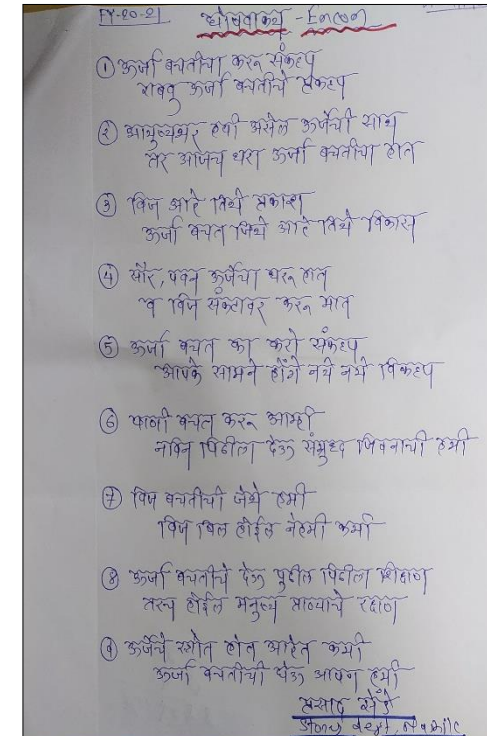 FY-20-21
घोषवाक्य - Encon
① ऊर्जा बचतीचा करू संकल्प
राबवु ऊर्जा बचतीचे प्रकल्प
② आयुष्यभर हवी असेल ऊर्जेची साथ
तर आजच धरा ऊर्जा बचतीचा हात
③ विज आहे तिथे प्रकाश
ऊर्जा बचत जिथे आहे तिथे विकास
④ सौर, पवन ऊर्जेचा धरू हात
व विज संकटावर करू मात
⑤ ऊर्जा बचत का करो संकल्प
आपके सामने होंगे नये नये विकल्प
⑥ पाणी बचत करू आम्ही
नविन पिढीला देऊ संमृध्द जिवनाची हमी
⑦ विज बचतीची जेथे हमी
विज बिल होईल नेहमी कमी
⑧ ऊर्जा बचतीचे देऊ पुढील पिढीला शिक्षण
तरच होईल मनुष्य प्राण्याचे रक्षण
⑨ ऊर्जेचे स्त्रोत होत आहेत कमी
ऊर्जा बचतीची घेऊ आपण हमी
प्रसाद
dept,